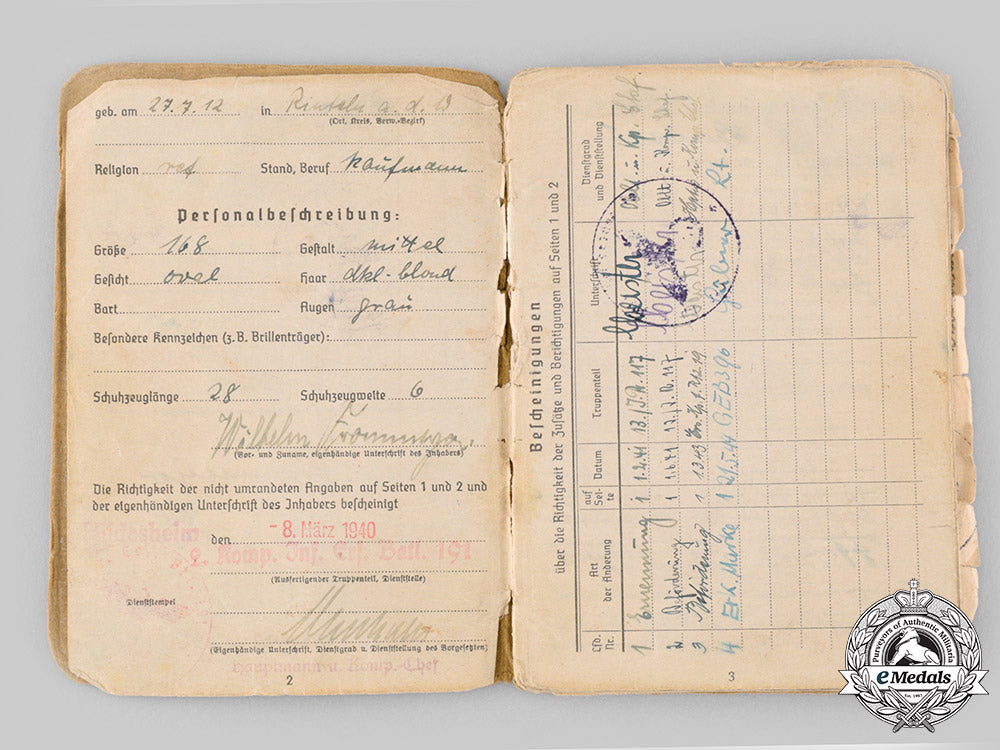 geb. am 27.7.12 in Rinteln a. d. W
(Ort, Kreis, Verw.-Bezirk)
Religion ref Stand, Beruf Kaufmann
Personalbeschreibung:
Größe 168 Gestalt mittel
Gesicht oval Haar dkl.-blond
Bart Augen grau
Besondere Kennzeichen (z. B. Brillenträger):
Schuhzeuglänge 28 Schuhzeugweite 6
Wilhelm
(Vor- und Zuname, eigenhändige Unterschrift des Inhabers)
Die Richtigkeit der nicht umrandeten Angaben auf Seiten 1 und 2 und
der eigenhändigen Unterschrift des Inhabers bescheinigt
den -8. März 1940
2. Komp. Inf. Ers. Batl. 191
(Ausfertigender Truppenteil, Dienststelle)
Dienststempel
(Eigenhändige Unterschrift, Dienstgrad u. Dienststellung des Vorgesetzten)
Hauptmann u. Komp. Chef
2
Bescheinigungen
über die Richtigkeit der Zusätze und Berichtigungen auf Seiten 1 und 2
Lfd. Nr. Art der Änderung auf Seite Datum Truppenteil Unterschrift Dienstgrad und Dienststellung
1 Ernennung 1 1.2.41 13./J.R. 117 u. Kp. Chef
2 Beförderung 1 13./J.R. 117 u. Komp.
3 Beförderung 1
4 Erk. Marke 1 21.5.44 Lt.
3
Purveyors of Authentic Militaria
eMedals